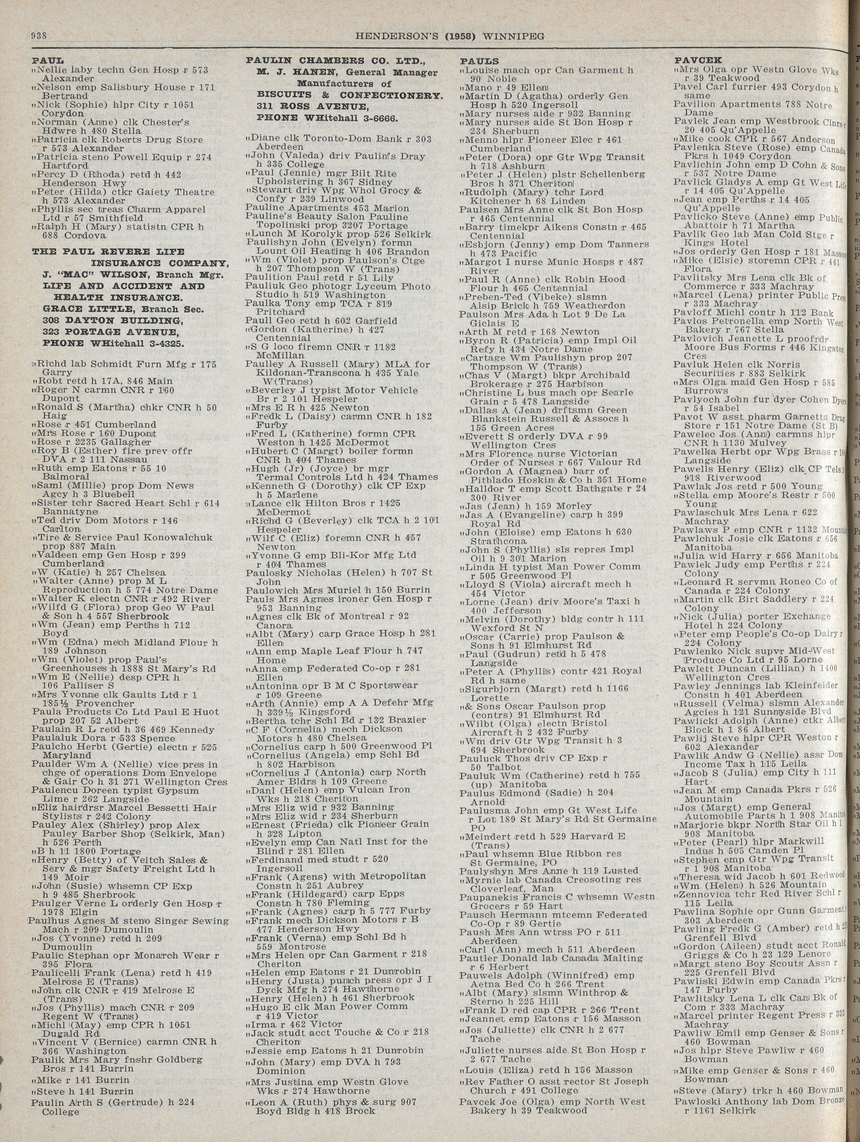 938
HENDERSON'S (1958) WINNIPEG
PAUL
"Nellie laby techn Gen Hosp r 573
Alexander
"Nelson emp Salisbury House r 171
Bertrand
"Nick (Sophie) hlpr City r 1051
Corydon
"Norman (Anne) clk Chester's
Hdwre h 480 Stella
"Patricia clk Roberts Drug Store
r 573 Alexander
"Patricia steno Powell Equip r 274
Hartford
"Percy D (Rhoda) retd h 442
Henderson Hwy
"Peter (Hilda) ctkr Gaiety Theatre
h 573 Alexander
"Phyllis sec treas Charm Apparel
Ltd r 57 Smithfield
"Ralph H (Mary) statistn CPR h
688 Cordova
THE PAUL REVERE LIFE
INSURANCE COMPANY,
J. "MAC" WILSON, Branch Mgr.
LIFE AND ACCIDENT AND
HEALTH INSURANCE.
GRACE LITTLE, Branch Sec.
308 DAYTON BUILDING,
323 PORTAGE AVENUE,
PHONE WHitehall 3-4325.
"Richd lab Schmidt Furn Mfg r 175
Garry
"Robt retd h 17A, 846 Main
"Roger N carmn CNR r 160
Dupont
"Ronald S (Martha) chkr CNR h 50
Haig
"Rose r 451 Cumberland
"Mrs Rose r 160 Dupont
"Rose r 2235 Gallagher
"Roy B (Esther) fire prev offr
DVA r 2 111 Nassau
"Ruth emp Eatons r 55 10
Balmoral
"Saml (Millie) prop Dom News
Agcy h 3 Bluebell
"Sister tchr Sacred Heart Schl r 614
Bannatyne
"Ted driv Dom Motors r 146
Carlton
"Tire & Service Paul Konowalchuk
prop 887 Main
"Valdeen emp Gen Hosp r 399
Cumberland
"W (Katie) h 257 Chelsea
"Walter (Anne) prop M L
Reproduction h 5 774 Notre Dame
"Walter K electn CNR r 492 River
"Wilfd G (Flora) prop Geo W Paul
& Son h 4 557 Sherbrook
"Wm (Jean) emp Perths h 712
Boyd
"Wm (Edna) mech Midland Flour h
189 Johnson
"Wm (Violet) prop Paul's
Greenhouses h 1888 St Mary's Rd
"Wm E (Nellie) desp CPR h
106 Palliser S
"Mrs Yvonne clk Gaults Ltd r 1
185½ Provencher
Paula Products Co Ltd Paul E Huot
prop 207 52 Albert
Paulain R L retd h 36 469 Kennedy
Paulaluk Dora r 533 Spence
Paulcho Herbt (Gertie) electn r 525
Maryland
Paulder Wm A (Nellie) vice pres in
chge of operations Dom Envelope
& Gair Co h 31 271 Wellington Cres
Paulencu Doreen typist Gypsum
Lime r 262 Langside
"Eliz hairdrsr Marcel Bessetti Hair
Stylists r 242 Colony
Pauley Alex (Shirley) prop Alex
Pauley Barber Shop (Selkirk, Man)
h 526 Perth
"B h 11 1800 Portage
"Henry (Betty) of Veitch Sales &
Serv & mgr Safety Freight Ltd h
149 Moir
"John (Susie) whsemn CP Exp
h 9 486 Sherbrook
Paulger Verne L orderly Gen Hosp r
1978 Elgin
Paulhus Agnes M steno Singer Sewing
Mach r 209 Dumoulin
"Jos (Yvonne) retd h 209
Dumoulin
Paulic Stephan opr Monarch Wear r
395 Flora
Paulicelli Frank (Lena) retd h 419
Melrose E (Trans)
"John clk CNR r 419 Melrose E
(Trans)
"Jos (Phyllis) mach CNR r 209
Regent W (Trans)
"Michl (May) emp CPR h 1051
Dugald Rd
"Vincent V (Bernice) carmn CNR h
366 Washington
Paulik Mrs Mary fnshr Goldberg
Bros r 141 Burrin
"Mike r 141 Burrin
"Steve h 141 Burrin
Paulin Arth S (Gertrude) h 224
College
PAULIN CHAMBERS CO. LTD.,
M. J. HANEN, General Manager
Manufacturers of
BISCUITS & CONFECTIONERY.
311 ROSS AVENUE,
PHONE WHitehall 3-6666.
"Diane clk Toronto-Dom Bank r 303
Aberdeen
"John (Valeda) driv Paulin's Dray
h 385 College
"Paul (Jennie) mgr Bilt Rite
Upholstering h 367 Sidney
"Stewart driv Wpg Whol Grocy &
Confy r 239 Linwood
Pauline Apartments 453 Marion
Pauline's Beauty Salon Pauline
Topolinski prop 2207 Portage
"Lunch M Korolyk prop 526 Selkirk
Paulishyn John (Evelyn) formn
Lount Oil Heating h 406 Brandon
"Wm (Violet) prop Paulson's Ctge
h 207 Thompson W (Trans)
Paulition Paul retd r 51 Lily
Pauliuk Geo photogr Lyceum Photo
Studio h 519 Washington
Paulka Tony emp TCA r 819
Pritchard
Paull Geo retd h 602 Garfield
"Gordon (Katherine) h 427
Centennial
"S G loco firemn CNR r 1182
McMillan
Paulley A Russell (Mary) MLA for
Kildonan-Transcona h 435 Yale
W(Trans)
"Beverley J typist Motor Vehicle
Br r 2 101 Hespeler
"Mrs E R h 425 Newton
"Fredk L (Daisy) carmn CNR h 182
Furby
"Fred L (Katherine) formn CPR
Weston h 1425 McDermot
"Hubert C (Margt) boiler formn
CNR h 404 Thames
"Hugh (Jr) (Joyce) br mgr
Termal Controls Ltd h 424 Thames
"Kenneth G (Dorothy) clk CP Exp
h 5 Marlene
"Lance clk Hilton Bros r 1425
McDermot
"Richd G (Beverley) clk TCA h 2 101
Hespeler
"Wilf C (Eliz) foremn CNR h 457
Newton
"Yvonne G emp Bli-Kor Mfg Ltd
r 404 Thames
Paulosky Nicholas (Helen) h 707 St
John
Paulowich Mrs Muriel h 150 Burrin
Pauls Mrs Agnes ironer Gen Hosp r
953 Banning
"Agnes clk Bk of Montreal r 92
Canora
"Albt (Mary) carp Grace Hosp h 281
Ellen
"Ann emp Maple Leaf Flour h 747
Home
"Anna emp Federated Co-op r 281
Ellen
"Antonina opr B M C Sportswear
r 109 Greene
"Arth (Annie) emp A A Defehr Mfg
h 339½ Kingsford
"Bertha tchr Schl Bd r 132 Brazier
"C F (Cornelia) mech Dickson
Motors h 480 Chelsea
"Cornelius carp h 500 Greenwood Pl
"Cornelius (Angela) emp Schl Bd
h 802 Harbison
"Cornelius J (Antonia) carp North
Amer Bldrs h 109 Greene
"Danl (Helen) emp Vulcan Iron
Wks h 218 Cheriton
"Mrs Eliz wid r 932 Banning
"Mrs Eliz wid r 234 Sherburn
"Ernest (Frieda) clk Pioneer Grain
h 328 Lipton
"Evelyn emp Can Natl Inst for the
Blind r 281 Ellen
"Ferdinand med studt r 520
Ingersoll
"Frank (Agens) with Metropolitan
Constn h 251 Aubrey
"Frank (Hildegard) carp Epps
Constn h 780 Fleming
"Frank (Agnes) carp h 5 777 Furby
"Frank mech Dickson Motors r B
477 Henderson Hwy
"Frank (Verna) emp Schl Bd h
559 Montrose
"Mrs Helen opr Can Garment r 218
Cheriton
"Helen emp Eatons r 21 Dunrobin
"Henry (Justa) punch press opr J I
Dyck Mfg h 274 Hawthorne
"Henry (Helen) h 461 Sherbrook
"Hugo E clk Man Power Comm
r 419 Victor
"Irma r 462 Victor
"Jack studt acct Touche & Co r 218
Cheriton
"Jessie emp Eatons h 21 Dunrobin
"John (Mary) emp DVA h 793
Dominion
"Mrs Justina emp Westn Glove
Wks r 274 Hawthorne
"Leon A (Ruth) phys & surg 907
Boyd Bldg h 418 Brock
PAULS
"Louise mach opr Can Garment h
90 Noble
"Mano r 49 Ellen
"Martin D (Agatha) orderly Gen
Hosp h 520 Ingersoll
"Mary nurses aide r 932 Banning
"Mary nurses aide St Bon Hosp r
234 Sherburn
"Menno hlpr Pioneer Elec r 461
Cumberland
"Peter (Dora) opr Gtr Wpg Transit
h 718 Ashburn
"Peter J (Helen) plstr Schellenberg
Bros h 371 Cheriton
"Rudolph (Mary) tchr Lord
Kitchener h 68 Linden
Paulsen Mrs Anne clk St Bon Hosp
r 465 Centennial
"Barry timekpr Aikens Constn r 465
Centennial
"Esbjorn (Jenny) emp Dom Tanners
h 473 Pacific
"Margot I nurse Munic Hosps r 487
River
"Paul R (Anne) clk Robin Hood
Flour h 465 Centennial
"Preben-Ted (Vibeke) slsmn
Alsip Brick h 759 Weatherdon
Paulson Mrs Ada h Lot 9 De La
Giclais E
"Arth M retd r 168 Newton
"Byron R (Patricia) emp Impl Oil
Refy h 434 Notre Dame
"Cartage Wm Paulishyn prop 207
Thompson W (Trans)
"Chas V (Margt) bkpr Archibald
Brokerage r 275 Harbison
"Christine L bus mach opr Searle
Grain r 5 478 Langside
"Dallas A (Jean) drftsmn Green
Blankstein Russell & Assocs h
155 Green Acres
"Everett S orderly DVA r 99
Wellington Cres
"Mrs Florence nurse Victorian
Order of Nurses r 667 Valour Rd
"Gordon A (Magnea) barr of
Pitblado Hoskin & Co h 351 Home
"Halldor T emp Scott Bathgate r 24
300 River
"Jas (Jean) h 159 Morley
"Jas A (Evangeline) carp h 399
Royal Rd
"John (Eloise) emp Eatons h 630
Strathcona
"John S (Phyllis) sls repres Impl
Oil h 9 301 Marion
"Linda H typist Man Power Comm
r 505 Greenwood Pl
"Lloyd S (Viola) aircraft mech h
454 Victor
"Lorne (Jean) driv Moore's Taxi h
400 Jefferson
"Melvin (Dorothy) bldg contr h 111
Wexford St N
"Oscar (Carrie) prop Paulson &
Sons h 91 Elmhurst Rd
"Paul (Gudrun) retd h 5 478
Langside
"Peter A (Phyllis) contr 421 Royal
Rd h same
"Sigurbjorn (Margt) retd h 1166
Lorette
"& Sons Oscar Paulson prop
(contrs) 91 Elmhurst Rd
"Wilbt (Olga) electn Bristol
Aircraft h 2 432 Furby
"Wm driv Gtr Wpg Transit h 3
694 Sherbrook
Pauluck Thos driv CP Exp r
50 Talbot
Pauluk Wm (Catherine) retd h 755
(up) Manitoba
Paulus Edmond (Sadie) h 204
Arnold
Paulusma John emp Gt West Life
r Lot 189 St Mary's Rd St Germaine
PO
"Meindert retd h 529 Harvard E
(Trans)
"Paul whsemn Blue Ribbon res
St Germaine, PO
Paulyshyn Mrs Anne h 119 Lusted
"Myrnie lab Canada Creosoting res
Cloverleaf, Man
Paupanekis Francis C whsemn Westn
Grocers r 59 Hart
Pausch Hermann mtcemn Federated
Co-Op r 89 Gertie
Paush Mrs Ann wtrss PO r 511
Aberdeen
"Carl (Ann) mech h 511 Aberdeen
Pautler Donald lab Canada Malting
r 6 Herbert
Pauwels Adolph (Winnifred) emp
Aetna Bed Co h 266 Trent
"Albt (Mary) slsmn Winthrop &
Sterno h 225 Hill
"Frank D red cap CPR r 266 Trent
"Jeannet emp Eatons r 156 Masson
"Jos (Juliette) clk CNR h 2 677
Tache
"Juliette nurses aide St Bon Hosp r
2 677 Tache
"Louis (Eliza) retd h 156 Masson
"Rev Father O asst rector St Joseph
Church r 491 College
Pavcek Joe (Olga) emp North West
Bakery h 39 Teakwood
PAVCEK
"Mrs Olga opr Westn Glove Wks
r 39 Teakwood
Pavel Carl furrier 493 Corydon h
same
Pavilion Apartments 788 Notre
Dame
Pavlek Jean emp Westbrook
20 405 Qu'Appelle
"Mike cook CPR r 567 Anderson
Pavlenka Steve (Rose) emp Canada
Pkrs h 1049 Corydon
Pavlichin John emp D Cohn & Sons
r 537 Notre Dame
Pavlick Gladys A emp Gt West Life
r 14 405 Qu'Appelle
"Jean emp Perths r 14 405
Qu'Appelle
Pavlicko Steve (Anne) emp Public
Abattoir h 71 Martha
Pavlik Geo lab Man Cold Stge r
Kings Hotel
"Jos orderly Gen Hosp r 181 Masson
"Mike (Elsie) storemn CPR r 441
Flora
Pavlitsky Mrs Lena clk Bk of
Commerce r 333 Machray
"Marcel (Lena) printer Public Press
r 333 Machray
Pavloff Michl contr h 112 Bank
Pavlos Petronella emp North West
Bakery r 767 Stella
Pavlovich Jeanette L proofrdr
Moore Bus Forms r 446 Kingston
Cres
Paviuk Helen clk Norris
Securities r 883 Selkirk
"Mrs Olga maid Gen Hosp r 585
Burrows
Pavlyoch John fur dyer Cohen Dyers
r 54 Isabel
Pavot W asst pharm Garnetta Drug
Store r 151 Notre Dame (St B)
Paweleo Jos (Ann) carmns hlpr
CNR h 1130 Mulvey
Pawelka Herbt opr Wpg Brass r
Langside
Pawells Henry (Eliz) clk CP Tels
918 Riverwood
Pawlak Jos retd r 500 Young
"Stella emp Moore's Restr r 500
Young
Pawlaschuk Mrs Lena r 622
Machray
Pawlaws P emp CNR r 1132
Pawlchuk Josie clk Eatons r 656
Manitoba
"Julia wid Harry r 656 Manitoba
Pawlek Judy emp Perths r 224
Colony
"Leonard R servmn Roneo Co of
Canada r 224 Colony
"Martin clk Birt Saddlery r 224
Colony
"Nick (Julia) porter Exchange
Hotel h 224 Colony
"Peter emp People's Co-op Dairy r
224 Colony
Pawlenko Nick supvr Mid-West
Produce Co Ltd r 95 Lorne
Pawlett Duncan (Lillian) h 1400
Wellington Cres
Pawley Jennings lab Kleinfelder
Constn h 401 Aberdeen
"Russell (Velma) slsmn Alexander
Agcies h 121 Sunnyside Blvd
Pawlicki Adolph (Anne) ctkr Albert
Block h 1 86 Albert
Pawlij Steve hlpr CPR Weston r
602 Alexander
Pawlik Andw G (Nellie) assr Dom
Income Tax h 115 Leila
"Jacob S (Julia) emp City h 111
Hart
"Jean M emp Canada Pkrs r 526
Mountain
"Jos (Margt) emp General
Automobile Parts h 1 908 Manitoba
"Marjorie bkpr North Star Oil h 1
908 Manitoba
"Peter (Pearl) hlpr Markwill
Indus h 505 Camden Pl
"Stephen emp Gtr Wpg Transit
r 1 908 Manitoba
"Theresa wid Jacob h 601 Redwood
"Wm (Helen) h 526 Mountain
"Zennovica tchr Red River Schl r
115 Leila
Pawlina Sophie opr Gunn Garment
303 Aberdeen
Pawling Fredk G (Amber) retd h
Grenfell Blvd
"Gordon (Aileen) studt acct Ronald
Griggs & Co h 23 129 Lenore
"Margt steno Boy Scouts Assn r
225 Grenfell Blvd
Pawliski Edwin emp Canada Pkrs r
147 Furby
Pawlitsky Lena L clk Can Bk of
Com r 333 Machray
"Marcel printer Regent Press r 333
Machray
Pawliw Emil emp Genser & Sons r
460 Bowman
"Jos hlpr Steve Pawliw r 460
Bowman
"Mike emp Genser & Sons r 460
Bowman
"Steve (Mary) trkr h 460 Bowman
Pawloski Anthony lab Dom Bronze
r 1161 Selkirk